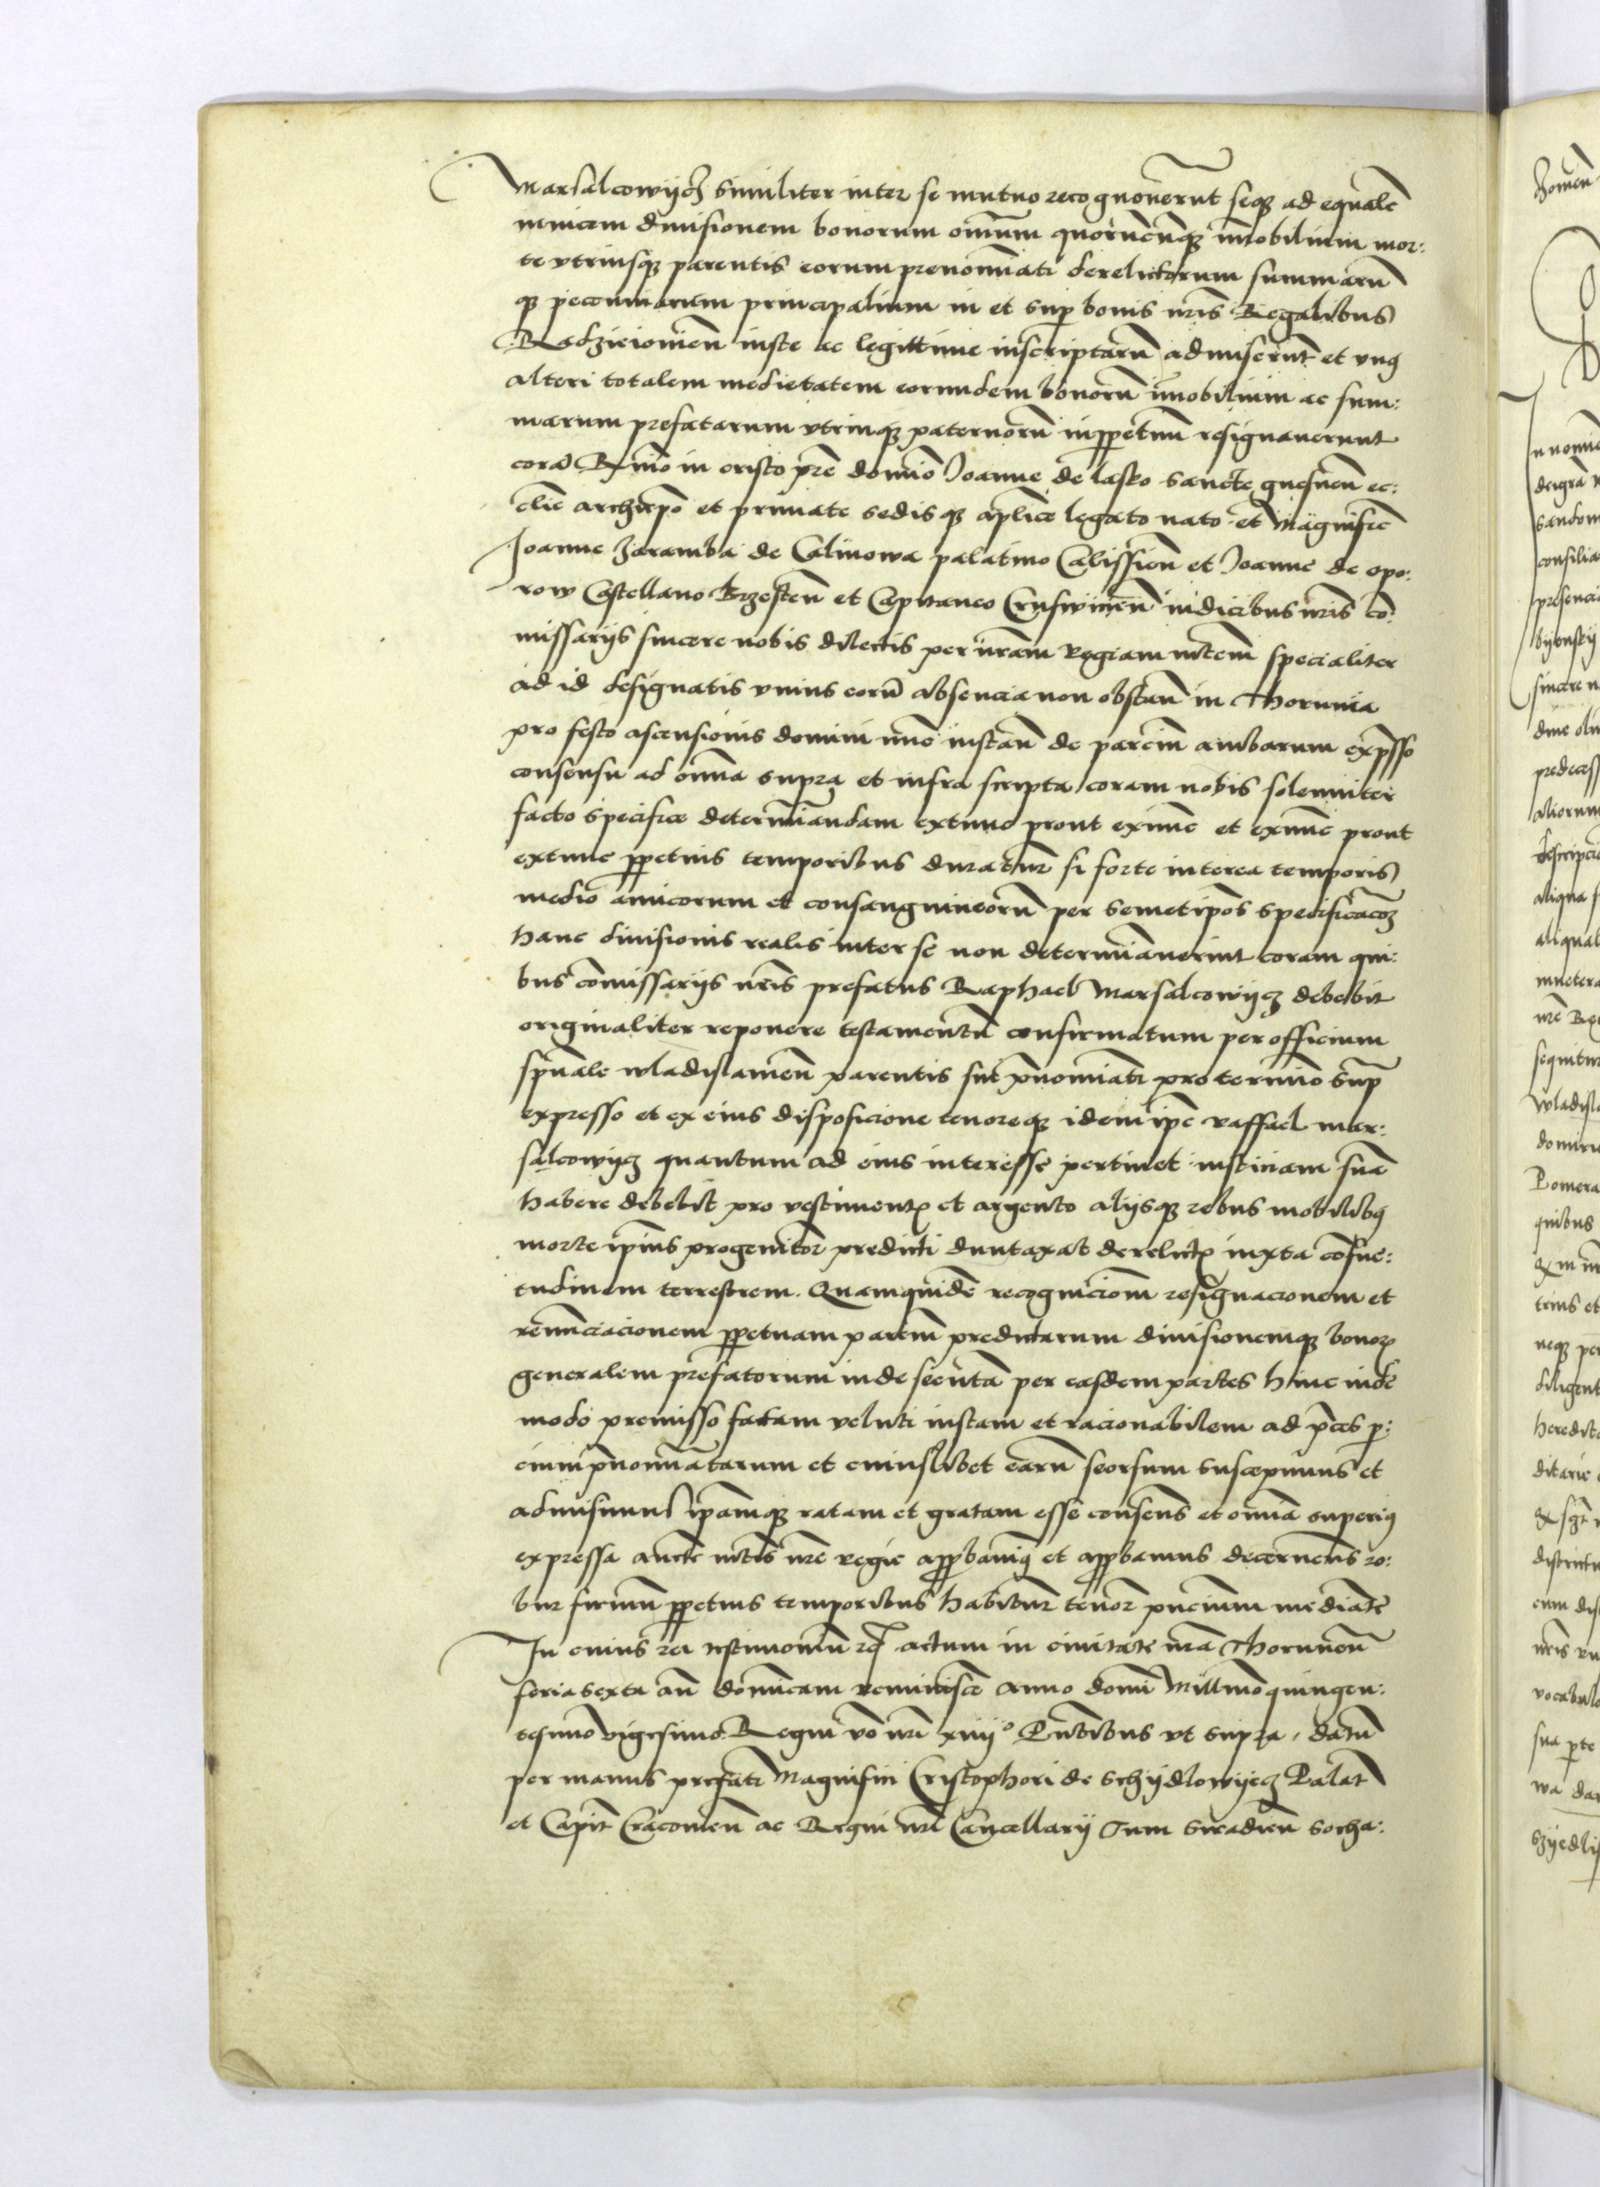 Marsalcowijcz similiter inter se mutuo recognoverūt seqȝ ad equalē
invicem divisionem bonorum omniūm quorūcūqȝ īmobilium mor:
te vtriusqȝ parentis eorum prenominati derelictorum summarū
qȝ pecuniarum principalium in et sup bonis nr̄is Regalibus
Radzieiovien̄ iuste ac legittime inscriptarū admiserūt et vnq
alteri totalem medietatem eorundem bonorū īmobilium ac sum:
marum prefatarum vtrinqȝ paternorū inppetuū resignaverunt
corā Rmo in cristo pr̄e domino Joanne de lasko sancte gnesnen̄ ec:
clīe archiepō et primate sedisqȝ aplice legato nato et Magnificis
Joanne Zaramba de Calinowa palatino Calissien̄ et Joanne de opo:
row Castellano Brzesten̄ et Capitaneo Crusvicien̄ iudicibus nr̄is cō
missarijs sincere nobis dilectis per nr̄am Regiam mtem̄ specialiter
ad id designatis vnius eorū absencia non obstan̄ in Thorunia
pro festo ascensionis domini nūc instan̄ de parcium ambarum exp̄sso
consensu ad omnia supra et infra scripta coram nobis solenniter
facto specifice determinandam extunc prout exnunc et exnunc prout
extunc ppetuis temporibus duratur̄ si forte interea temporis
medio amicorum et consanguineorū per semetipōs specificacōȝ
hanc divisionis realis inter se non determinaverint coram qui:
bus comissarijs nr̄is prefatus Raphael Marsalcowijcz debebit
originaliter reponere testamentū confirmatum per officium
spūale wladislavien̄ parentis sui pnominati pro termino sup
expresso et ex eius disposicione tenoreqȝ idem ipē raffael mar:
salcowijcz quantum ad eius interesse pertinet iusticiam suā
habere debebit pro vestimentꝭ et argento alijsqȝ rebus mobilibq
morte ipius progenitor̄ predicti duntaxat derelictꝭ iuxta cōsue:
tudinem terrestrem. Quamquidē recogniciōm resignacionem et
renunciacionem ppetuam parciū predictarum divisionemqȝ bonoꝝ
generalem prefatorum inde secutā per easdem partes hinc inde
modo premisso factam veluti iustam et racionabilem ad pces p̄:
cium pnominatarum et cuiuslibet earū seorsum suscepimus et
admisimus ipāmqȝ ratam et gratam esse consens̄ et omnia superiq
expressa auctē mtis nr̄e regie approbavimq et approbamus decernen̄s ro:
bur firmū ppetuis temporibus habitur̄ tenor̄ pncium mediāte
In cuius rei testimoniū rc̄ actum in civitate nr̄a Thorunen̄
feria sexta an̄ dominicam reminiscē anno domi Millmo quingen:
tesimo vigesimo Regni vo nri xiiij° Pn̄tibus vt supra, datū
per manus prefati Magnifici Cristophori de Schijdlowijecz Palat̄
et Capit̄ Cracovien̄ ac Regni nri Cancellarij Tum siradien̄ socha: